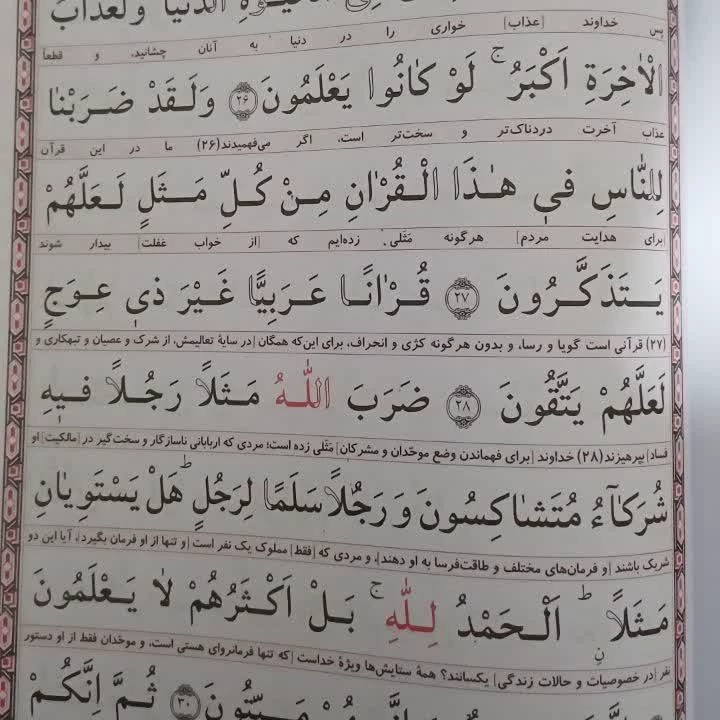 الدُّنْيَا وَلَعَذَابُ
پس خداوند [عذاب] خواری را در دنیا به آنان چشانید، و قطعاً
الْاٰخِرَةِ اَكْبَرُ ۚ لَوْ كَانُوا يَعْلَمُونَ ﴿٢٦﴾ وَلَـقَدْ ضَـرَبْنَا
عذاب آخرت دردناک‌تر و سخت‌تر است، اگر می‌فهمیدند(۲۶) ما در این قرآن
لِلنَّاسِ فى هٰذَا الْقُرْاٰنِ مِنْ كُلِّ مَثَلٍ لَعَلَّهُمْ
[برای هدایت مردم] هرگونه مَثَلی زده‌ایم که [از خواب غفلت] بیدار شوند
يَتَذَكَّرُونَ ﴿٢٧﴾ قُرْاٰنًا عَرَبِيًّا غَيْرَ ذى عِوَجٍ
(۲۷) قرآنی است گویا و رسا، و بدون هرگونه کژی و انحراف، برای این‌که همگان [در سایهٔ تعالیمش، از شرک و عصیان و تبهکاری و
لَعَلَّهُمْ يَتَّقُونَ ﴿٢٨﴾ ضَرَبَ اللّٰهُ مَثَلاً رَجُلاً فيهِ
فساد] بپرهیزند(۲۸) خداوند [برای فهماندن وضع موحّدان و مشرکان] مَثَلی زده است؛ مردی که اربابانی ناسازگار و سخت‌گیر در [مالکیت] او
شُرَكَآءُ مُتَشَاكِسُونَ وَ رَجُلاً سَلَمًا لِرَجُلٍ ؕ هَلْ يَسْتَوِيَانِ
شریک باشند [و فرمان‌های مختلف و طاقت‌فرسا به او دهند]، و مردی که [فقط] مملوک یک نفر است [و تنها از او فرمان بگیرد]، آیا این دو
مَثَلاً ؕ اَلْحَمْدُ لِلّٰهِ ۚ بَلْ اَكْثَرُهُمْ لَا يَعْلَمُونَ
نفر [در خصوصیات و حالات زندگی] یکسانند؟ همهٔ ستایش‌ها ویژهٔ خداست [که تنها فرمانروای هستی است، و موحّدان فقط از او دستور
مَيِّتُونَ ﴿٣٠﴾ ثُمَّ اِنَّكُمْ